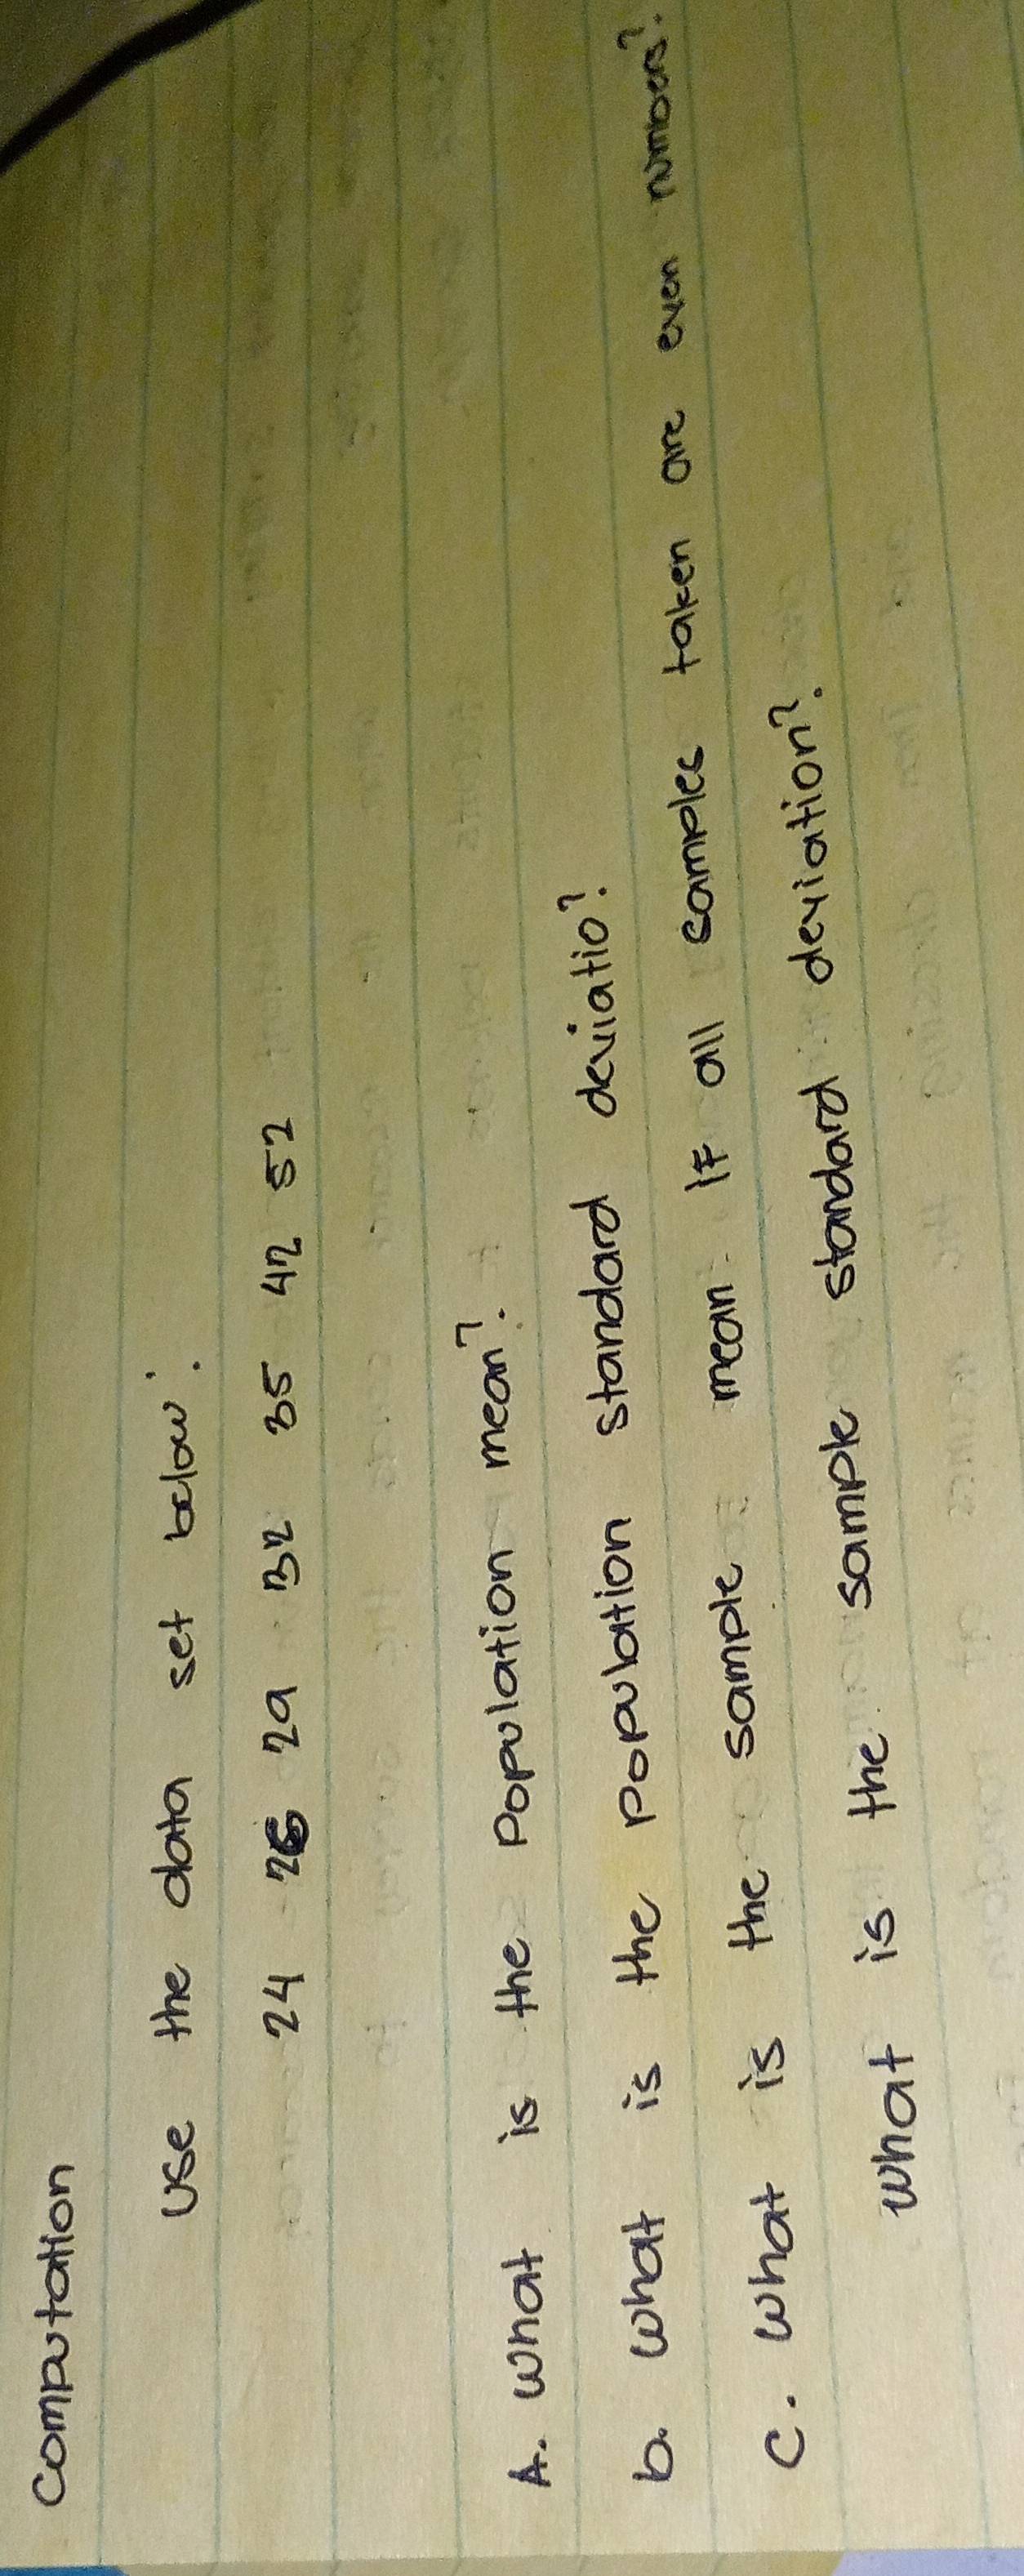 Computation
Use the data set below:
24 26 29 32 35 42 52
A. What is the population mean?
b. What is the population standard deviatio?
c. What is the sample mean if all samples taken are even number?
What is the sample standard deviation?